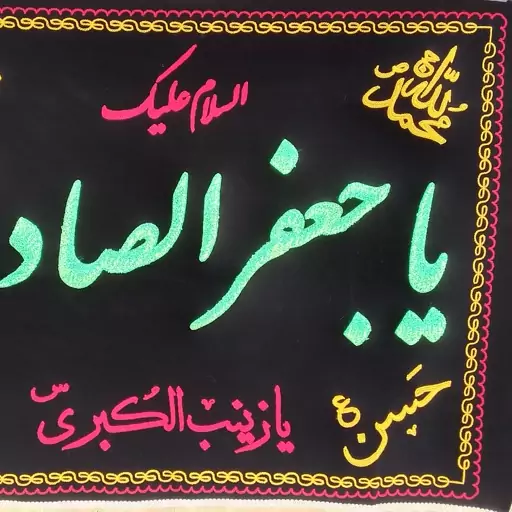 السلام علیک
محمد ص
یا جعفر الصاد
یا زینب الکبری س
حسن ع